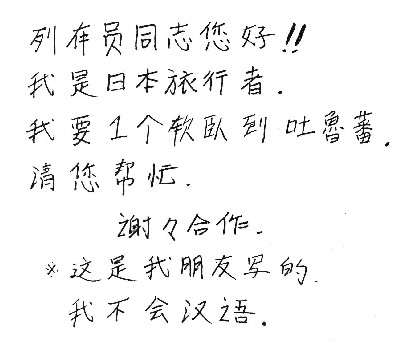 列车员同志您好!!
我是日本旅行者.
我要1个软臥到吐魯蕃.
清您帮忙.
谢々合作.
※这是我朋友写的.
我不会汉语.